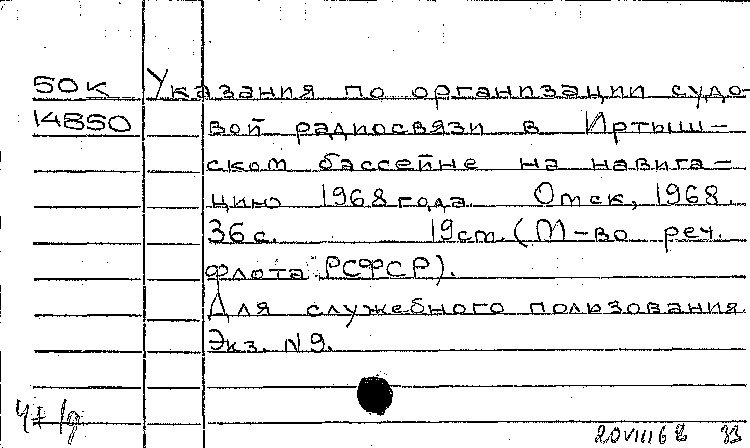 50к Указания по организации судо-
14850 вой радиосвязи в Иртыш-
ском бассейне на навига-
цию 1968 года. Омск, 1968.
36с. 19см. (М-во реч.
флота РСФСР).
Для служебного пользования
Экз. №9.
20VIII68 33